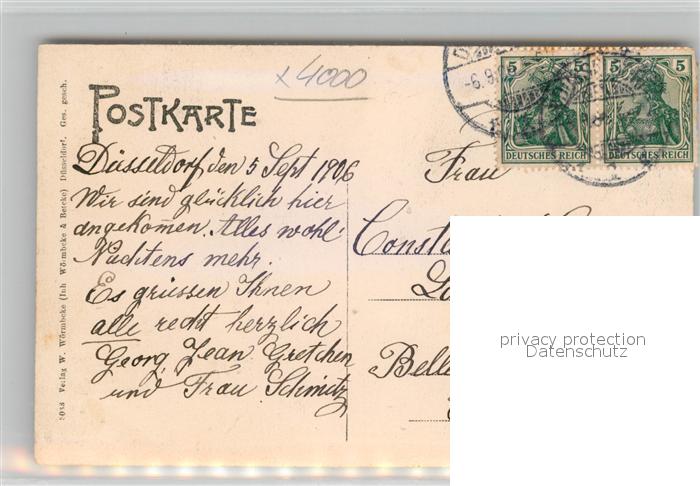 x 4000
POSTKARTE
Düsseldorf den 5 Sept 1906
Wir sind glücklich hier
angekommen. Alles wohl
Nächstens mehr.
Es grüssen Ihnen
alle recht herzlich
Georg, Jean Gretchen
und Frau Schmitz
Frau
Const
Belle
5 5
DEUTSCHES REICH
5 5
DEUTSCHES REICH
-6.9.
Verlag W. Wörmbcke (Inh Wörmbcke & Betcke) Düsseldorf. Ges. gesch.
privacy protection
Datenschutz